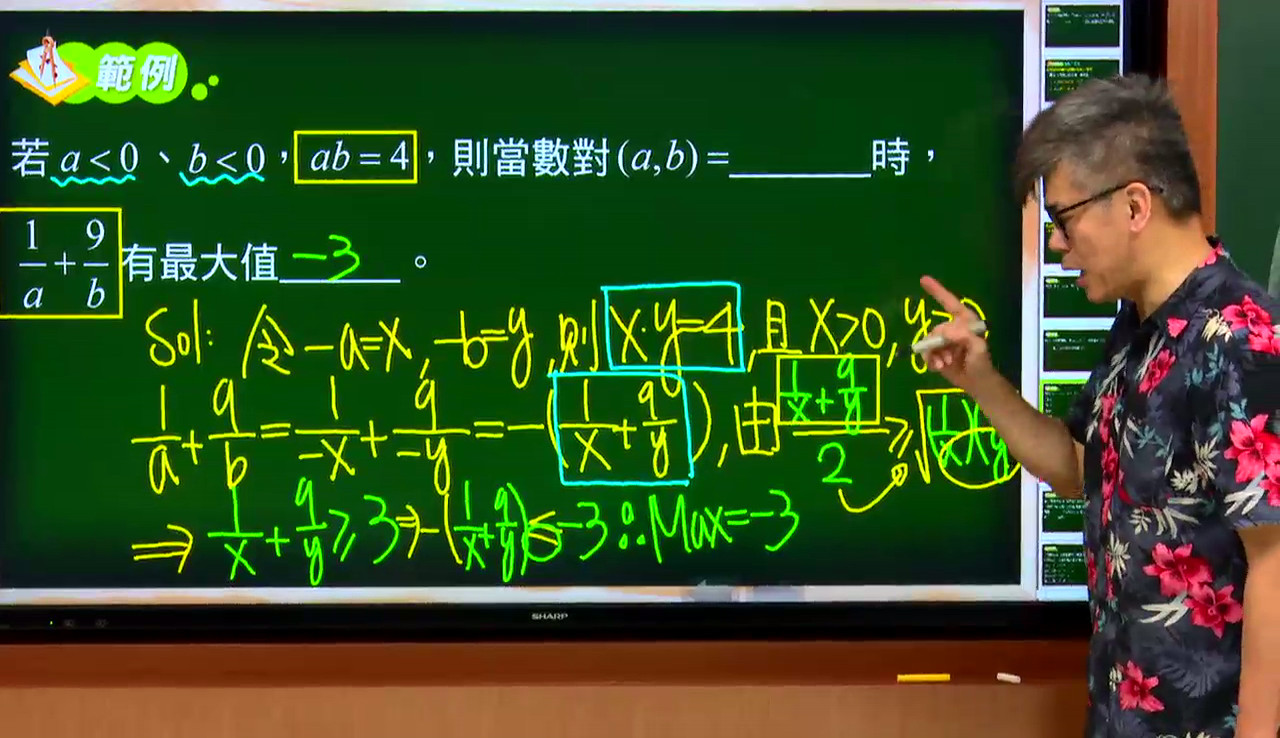 範例
若 a<0、b<0,ab=4,則當數對(a,b)=________時,
1/a+9/b有最大值 -3 。
Sol: 令-a=x, -b=y, 則 x·y=4, 且 x>0, y>0
1/a+9/b=1/-x+9/-y=-(1/x+9/y), 由 (1/x+9/y)/2≥√(1/x×9/y)
⇒ 1/x+9/y≥3⇒-(1/x+9/y)≤-3∴Max=-3
SHARP